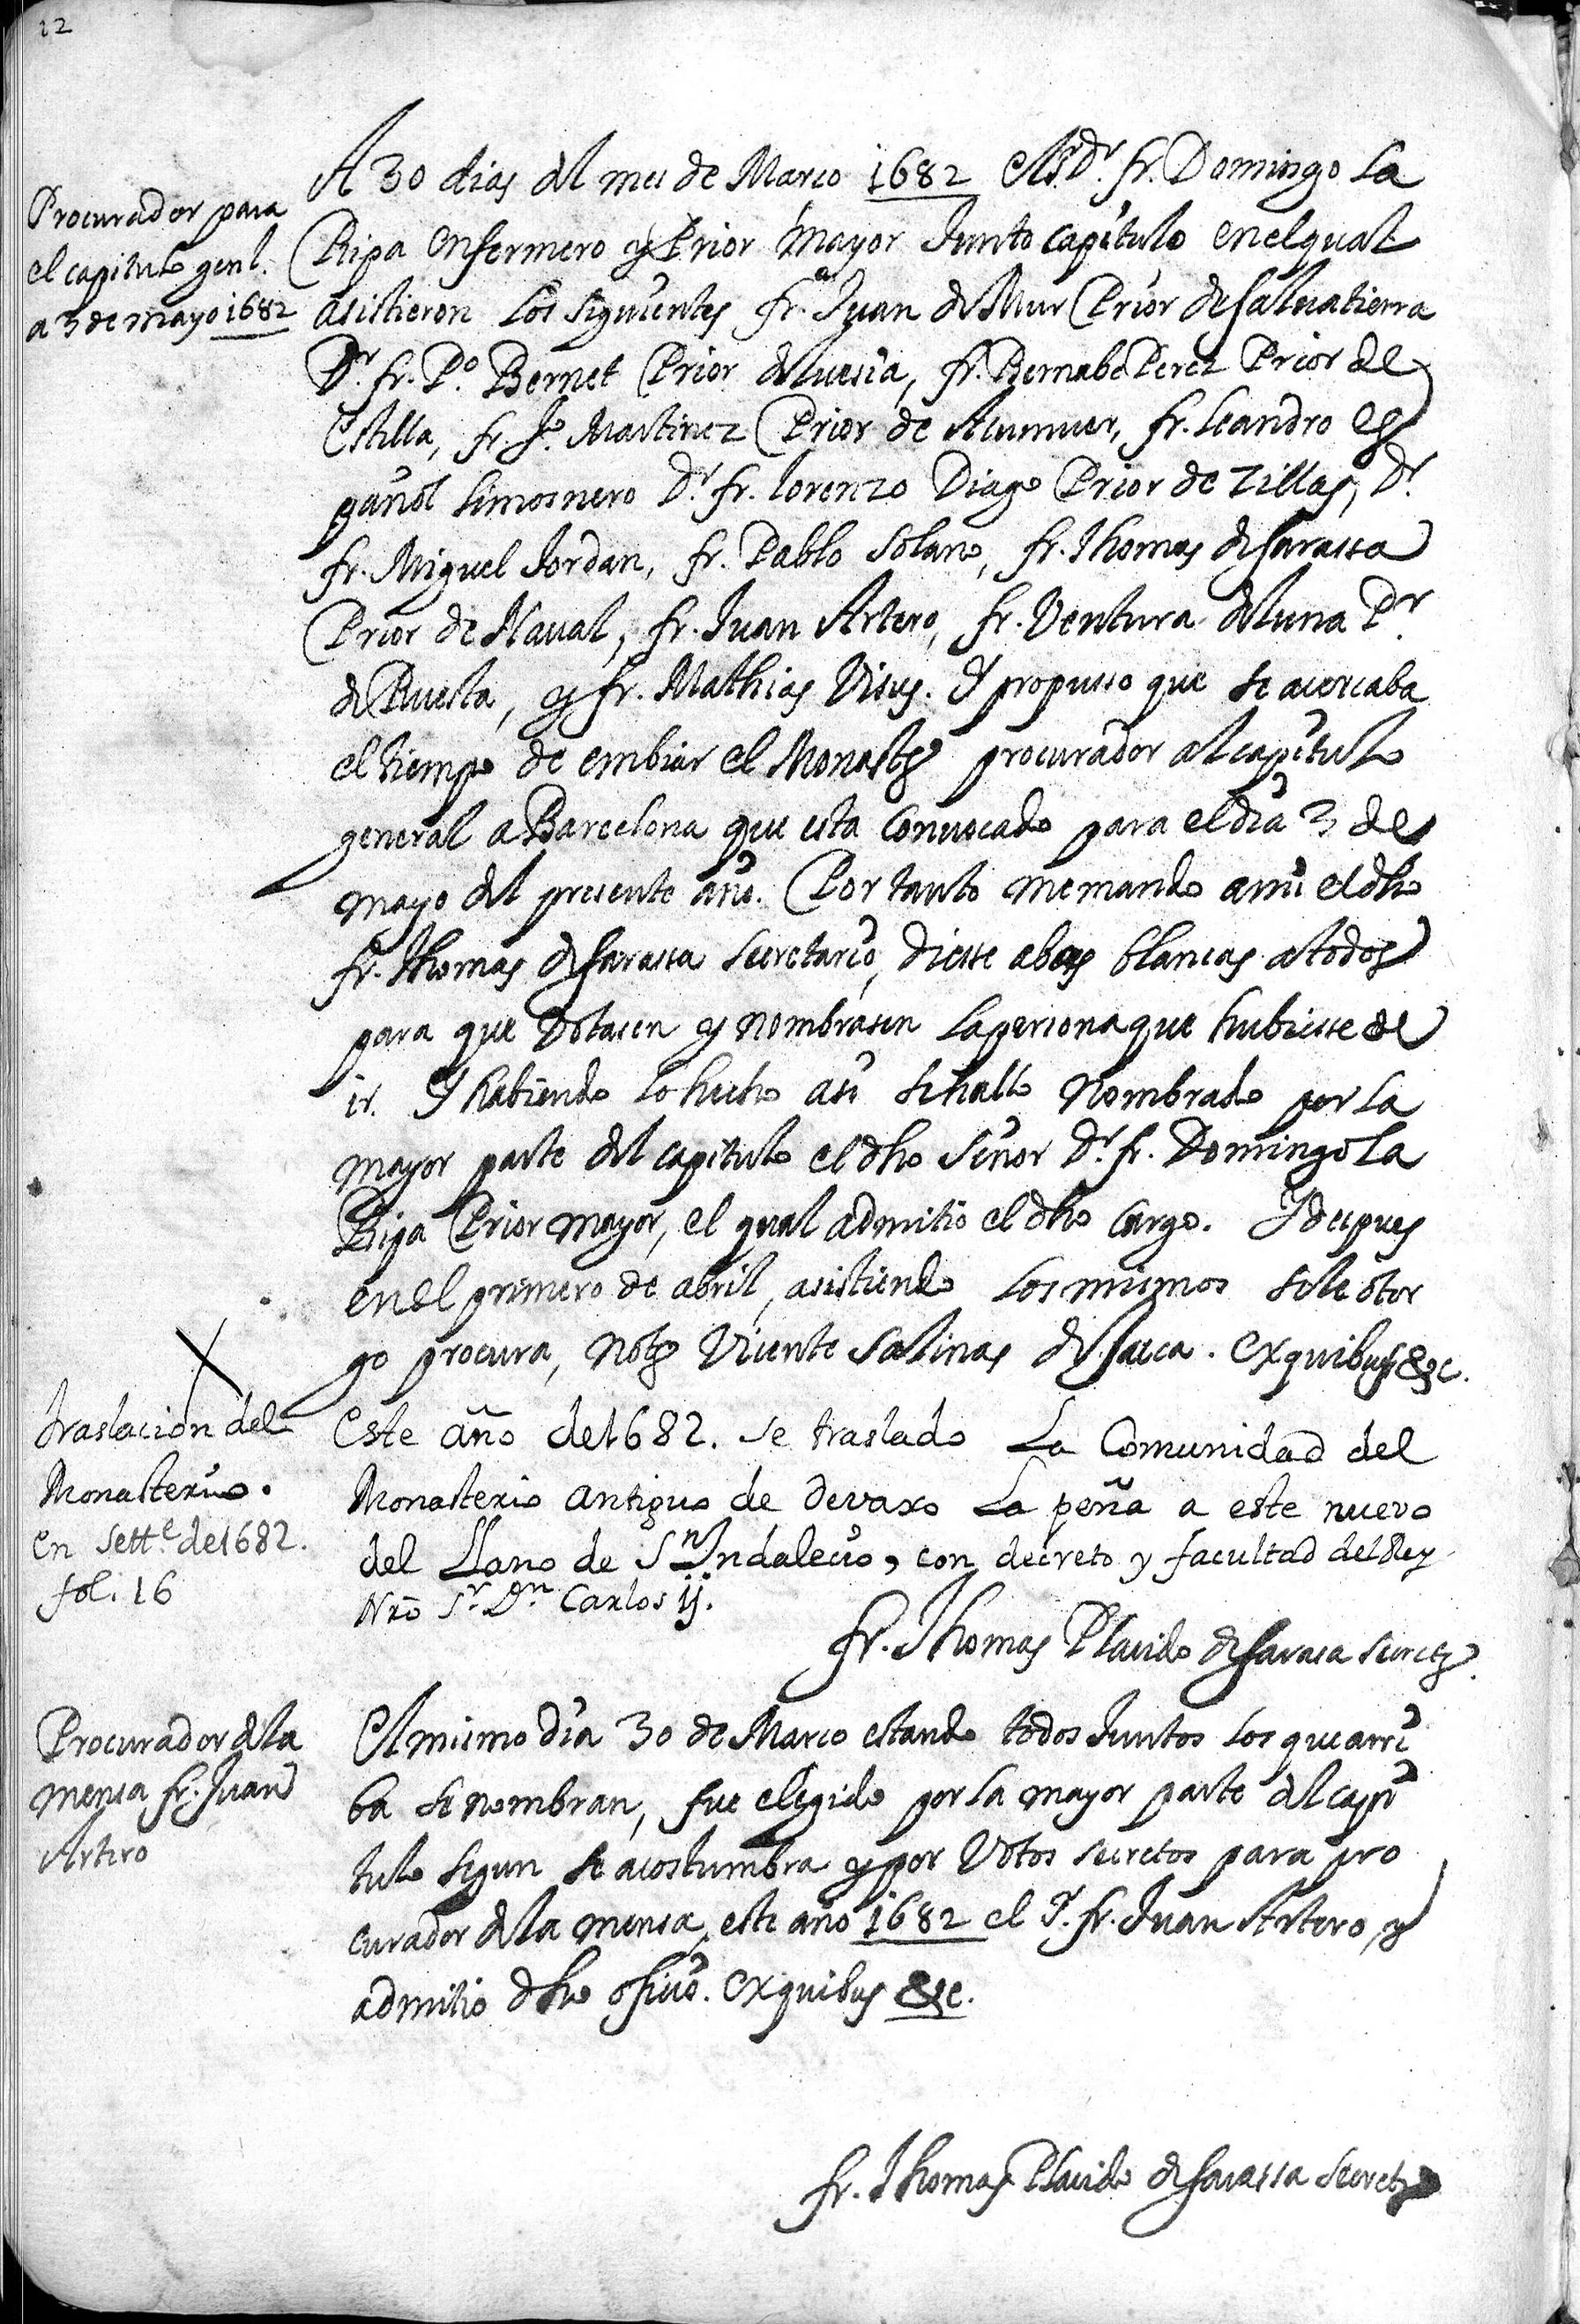 12
Procurador para
el capitulo genl.
a 3 de mayo 1682
A 30 dias del mes de Março 1682 el Sr. Dr. fr. Domingo la
Ripa enfermero y Prior mayor junto capitulo en el qual
asistieron los siguientes fr. Juan de Mur Prior de Saluatierra
Dr. fr. Po. Bernet Prior de Luesia, fr. Bernabe Perez Prior de
Estella, fr. Jo. Martinez Prior de Acumuer, fr. Leandro es
pañol limosnero Dr. fr. lorenzo Diago Prior de Zillas, Dr.
fr. Miguel Jordan, fr. Pablo Solano, fr. Thomas de Sarassa
Prior de Naual, fr. Juan Artero, fr. Ventura de luna Pr.
de Ruesta, y fr. Mathias Visus. Y propusso que se acercaba
el tiempo de embiar el Monasto procurador al capitulo
general a Barcelona que esta conuocado para el dia 3 de
mayo del presente año. Por tanto me mando a mi el dho
fr. Thomas de Sarassa secretario, diesse abas blancas a todos
para que votasen y nombrasen la persona que hubiesse de
ir. Y habiendo lo hecho asi se hallo nombrado por la
mayor parte del capitulo el dho señor Dr. fr. Domingo la
Ripa Prior mayor, el qual admitio el dho cargo. Y despues
en el primero de abril, asistiendo los mismos se le otor
go procura, noto Vicente Salinas de Jacca. Ex quibus &c.
Traslacion del
Monasterio.
en Sette. de 1682.
fol. 16
Este año de 1682. se traslado La Comunidad del
Monasterio antiguo de devaxo La peña a este nuevo
del Llano de Sn. Indalecio, con decreto y facultad del Rey
Nro Sr. Dn. Carlos ij.
fr. Thomas Placido de Sarasa secreto.
Procurador de la
mensa fr. Juan
Artero
El mismo dia 30 de Março estando todos juntos los que arri
ba se nombran, fue elegido por la mayor parte del capi
tulo segun se acostumbra y por votos secretos para pro
curador de la mensa, este año 1682 el P. fr. Juan Artero y
admitio dho oficio. Ex quibus &c.
fr. Thomas Placido de Sarassa secreto